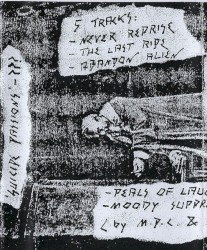 5 TRACKS:
- NEVER REPRISE
- THE LAST RIDE
- ABANDON ALIEN
- PEALS OF LAUG
- MOODY SUPPR
( by M.D.C. &